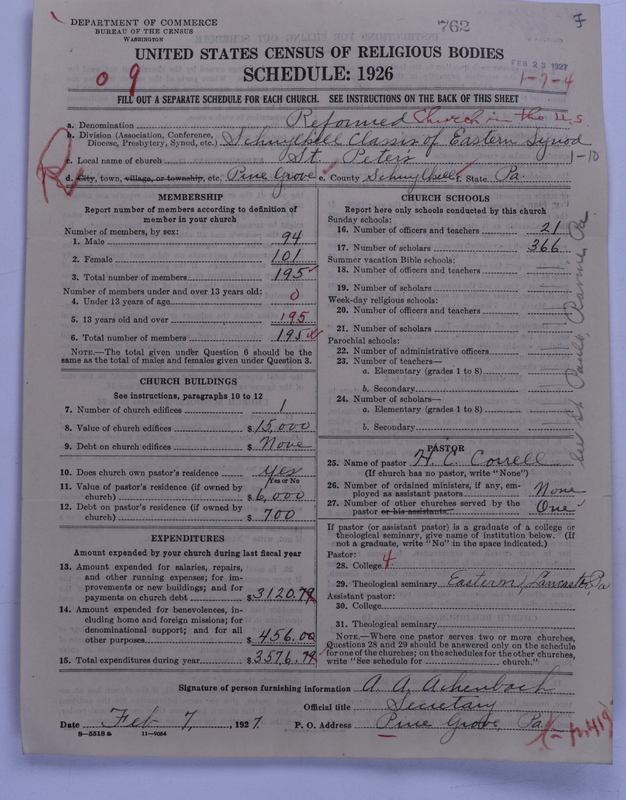 DEPARTMENT OF COMMERCE
BUREAU OF THE CENSUS
WASHINGTON
762
7
UNITED STATES CENSUS OF RELIGIOUS BODIES
FEB 23 1927
SCHEDULE: 1926
0 9
1-7-4
FILL OUT A SEPARATE SCHEDULE FOR EACH CHURCH. SEE INSTRUCTIONS ON THE BACK OF THIS SHEET
a. Denomination Reformed Church in the U.S
b. Division (Association, Conference, Diocese, Presbytery, Synod, etc.) Schuylkill Classis of Eastern Synod
c. Local name of church St. Peters 1-10
d. City, town, village, or township, etc. Pine Grove e. County Schuylkill f. State Pa.
R
MEMBERSHIP
Report number of members according to definition of
member in your church
Number of members, by sex:
1. Male 94
2. Female 101
3. Total number of members 195
Number of members under and over 13 years old:
4. Under 13 years of age 0
5. 13 years old and over 195
6. Total number of members 195
NOTE.—The total given under Question 6 should be
same as the total of males and females given under Question 3.
CHURCH BUILDINGS
See instructions, paragraphs 10 to 12
7. Number of church edifices 1
8. Value of church edifices $ 15,000
9. Debt on church edifices $ None
10. Does church own pastor's residence yes
Yes or No
11. Value of pastor's residence (if owned by
church) $ 6,000
12. Debt on pastor's residence (if owned by
church) $ 700
EXPENDITURES
Amount expended by your church during last fiscal year
13. Amount expended for salaries, repairs,
and other running expenses; for im-
provements or new buildings; and for
payments on church debt $ 3120.79
14. Amount expended for benevolences, in-
cluding home and foreign missions; for
denominational support; and for all
other purposes $ 456.00
15. Total expenditures during year $ 3576.79
CHURCH SCHOOLS
Report here only schools conducted by this church
Sunday schools:
16. Number of officers and teachers 21
17. Number of scholars 366
Summer vacation Bible schools:
18. Number of officers and teachers
19. Number of scholars
Week-day religious schools:
20. Number of officers and teachers
21. Number of scholars
Parochial schools:
22. Number of administrative officers
23. Number of teachers—
a. Elementary (grades 1 to 8)
b. Secondary
24. Number of scholars—
a. Elementary (grades 1 to 8)
b. Secondary
See St. Pauls, Pa
PASTOR
25. Name of pastor H. C. Correll
(If church has no pastor, write "None")
26. Number of ordained ministers, if any, em-
ployed as assistant pastors None
27. Number of other churches served by the
pastor or his assistants One
If pastor (or assistant pastor) is a graduate of a college or
theological seminary, give name of institution below. (If
not a graduate, write "No" in the space indicated.)
Pastor:
28. College 4
29. Theological seminary Eastern, Lancaster, Pa
Assistant pastor:
30. College
31. Theological seminary
NOTE.—Where one pastor serves two or more churches,
Questions 28 and 29 should be answered only on the schedule
for one of the churches; on the schedules for the other churches,
write "See schedule for church."
Signature of person furnishing information A. A. Achenbach
Official title Secretary
Date Feb 7, 1927. P. O. Address Pine Grove, Pa
8-5518a 11-9054